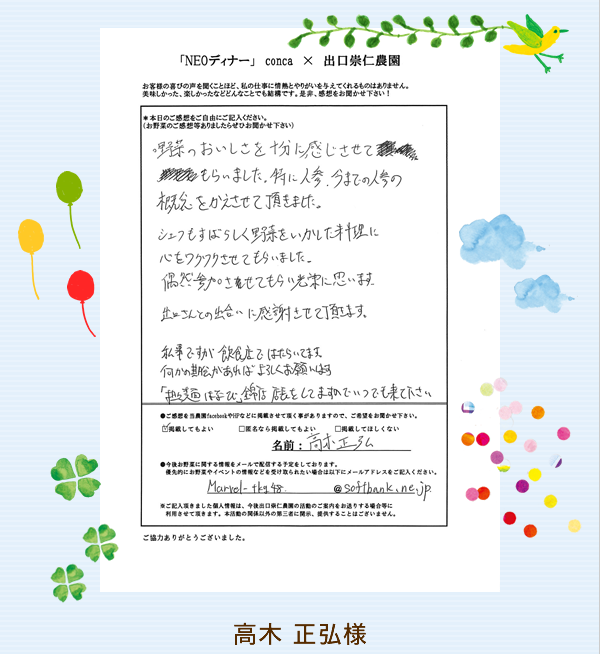 「NEOディナー」 conca × 出口崇仁農園
お客様の喜びの声を聞くことほど、私の仕事に情熱とやりがいを与えてくれるものはありません。
美味しかった、楽しかったなどどんなことでも結構です。是非、感想をお聞かせ下さい！
＊本日のご感想をご自由にご記入ください。
（お野菜のご感想等ありましたらぜひお聞かせ下さい）
野菜のおいしさを十分に感じさせて
もらいました。特に人参、今までの人参の
概念をかえさせて頂きました。
シェフもすばらしく野菜をいかした料理に
心をワクワクさせてもらいました。
偶然参加させてもらい光栄に思います。
出口さんとの出会いに感謝させて頂きます。
私事ですが飲食店ではたらいてます。
何かの機会があればよろしくお願いします
店長をしてますのでいつでも来て下さい
●ご感想を当農園facebookやHPなどに掲載させて頂く事がありますので、ご希望をお聞かせ下さい。
☑掲載してもよい □匿名なら掲載してもよい □掲載してほしくない
名前：高木正弘
●今後お野菜に関する情報をメールで配信する予定をしております。
優先的にお野菜やイベントの情報などを受け取られたい場合は以下にメールアドレスをご記入ください。
Marvel-tkg48. @softbank.ne.jp
※ご記入頂きました個人情報は、今後出口崇仁農園の活動のご案内をお送りする場合等に
利用させて頂きます。本活動の関係以外の第三者に開示、提供することはございません。
ご協力ありがとうございました。
高木 正弘様